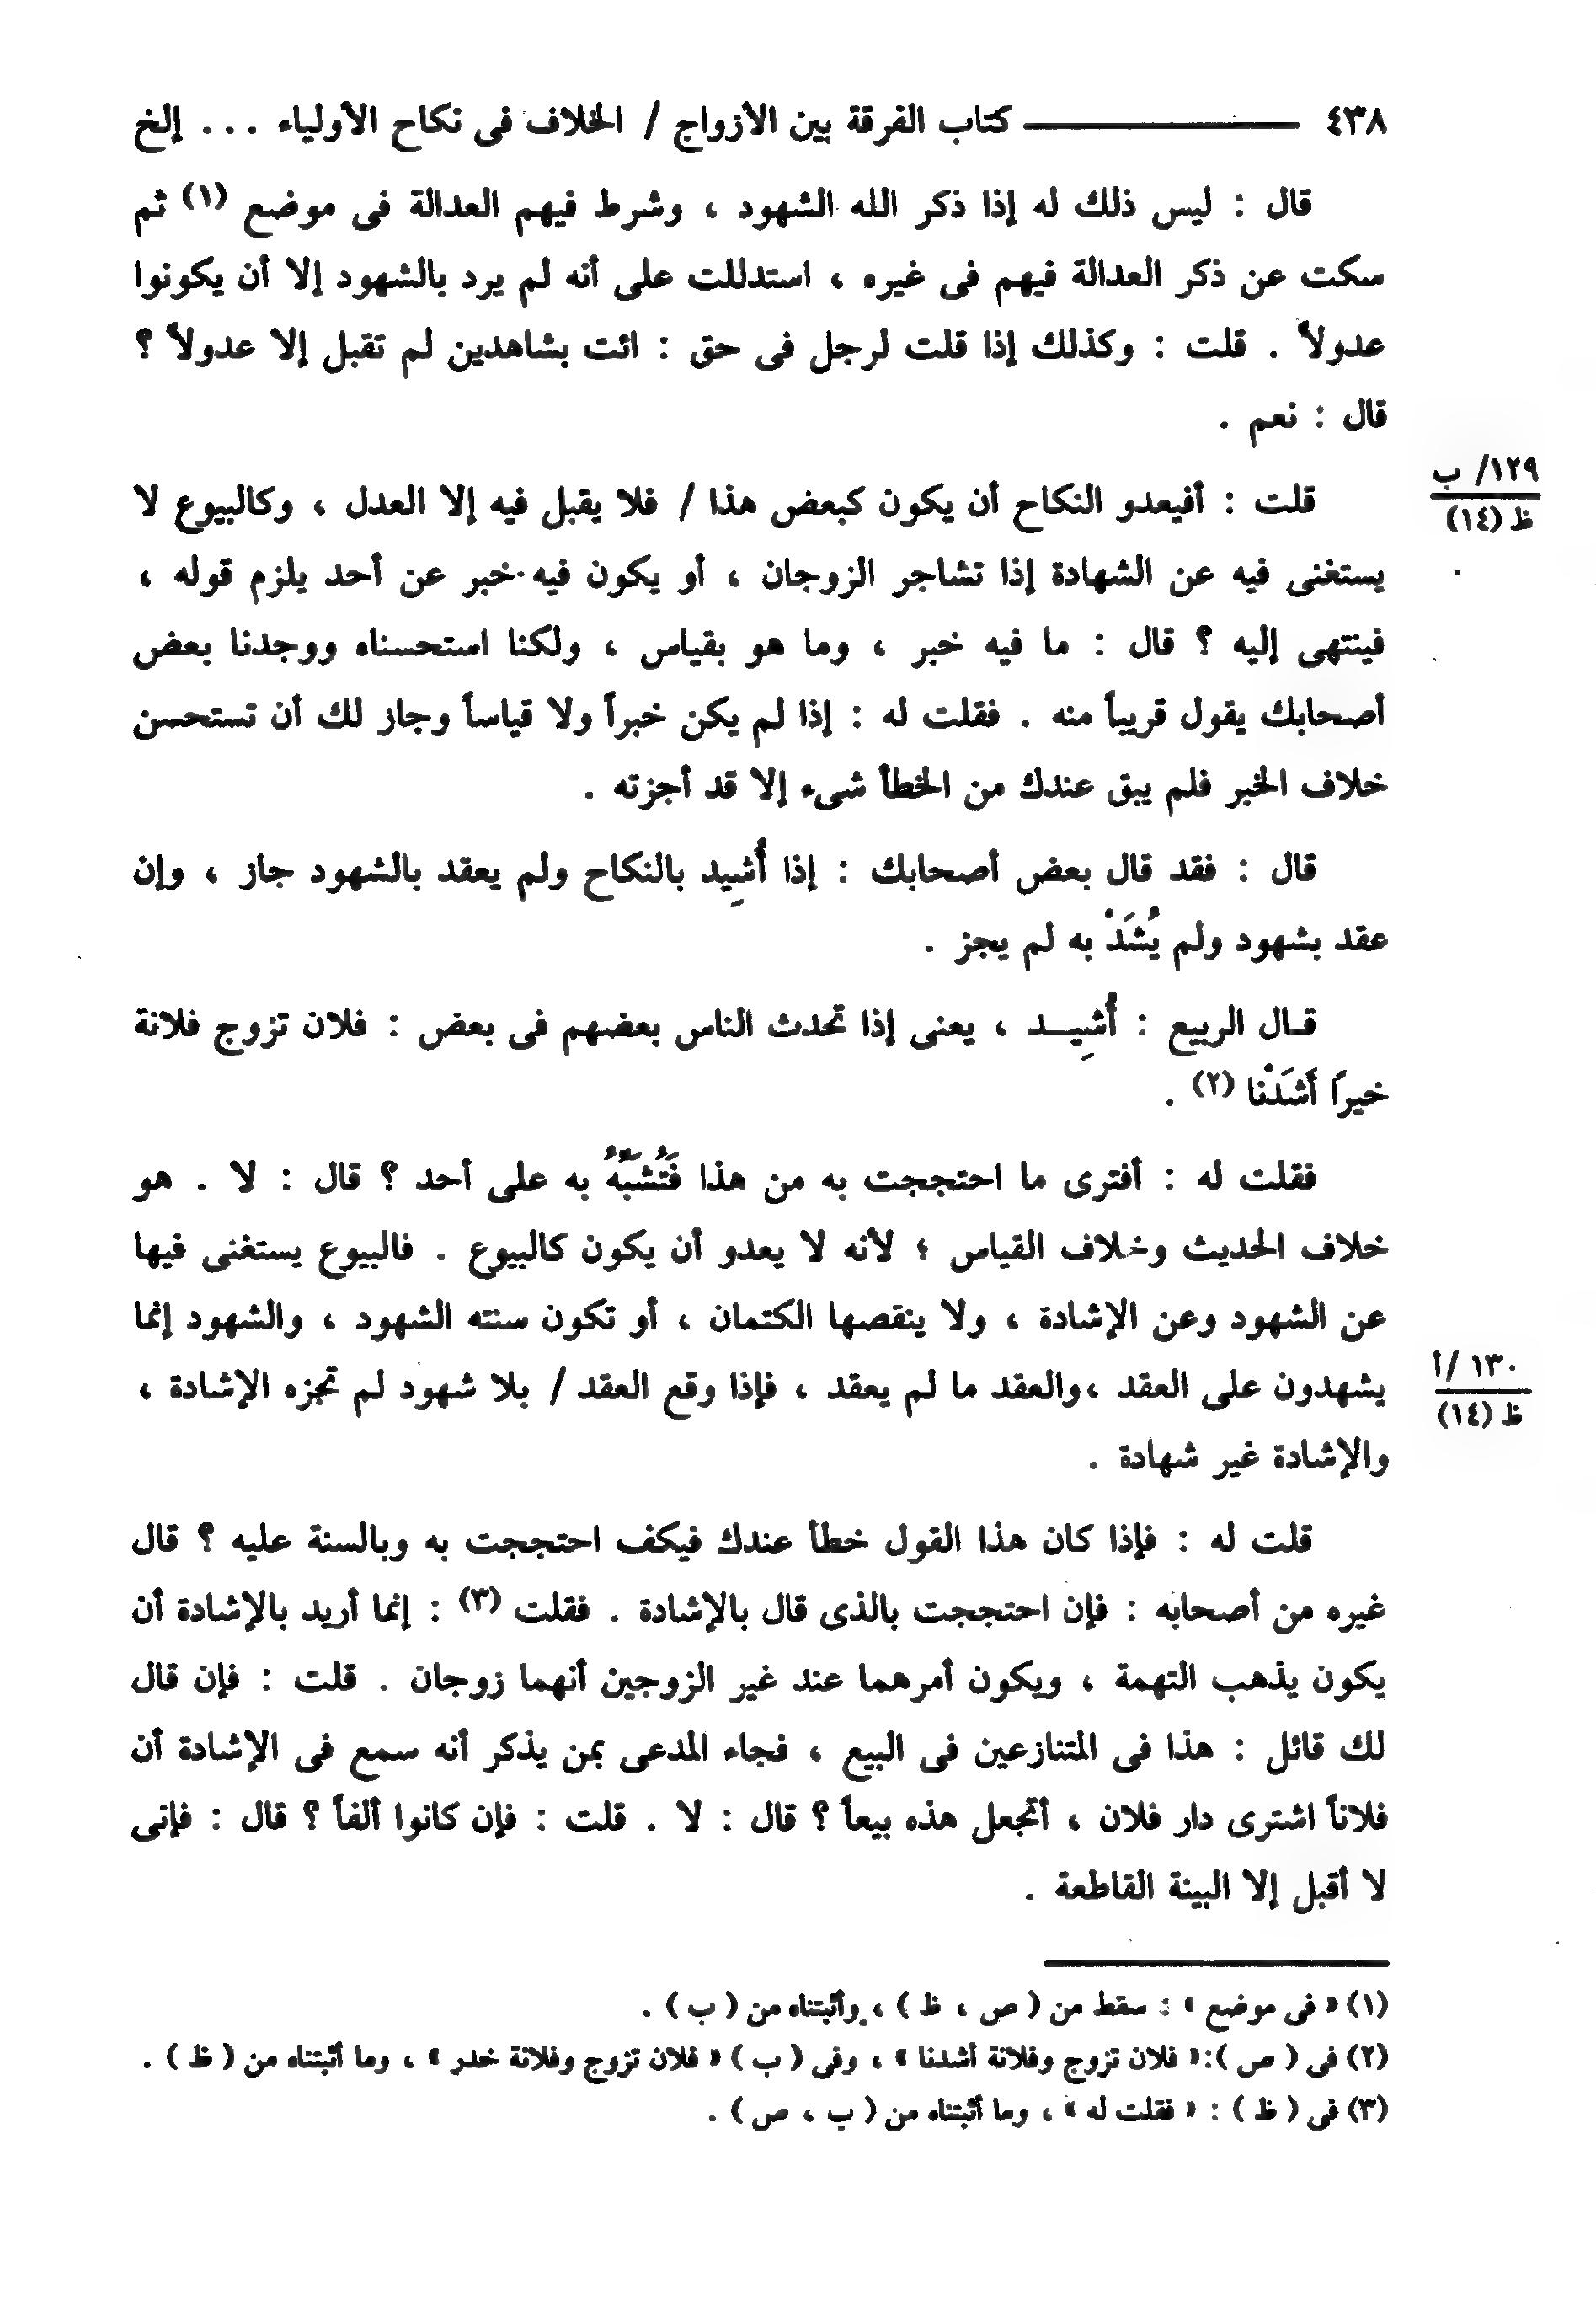 ٤٣٨ ــــــــ كتاب الفرقة بين الأزواج / الخلاف فى نكاح الأولياء ... إلخ
قال : ليس ذلك له إذا ذكر الله الشهود ، وشرط فيهم العدالة فى موضع (١) ثم
سكت عن ذكر العدالة فيهم فى غيره ، استدللت على أنه لم يرد بالشهود إلا أن يكونوا
عدولاً . قلت : وكذلك إذا قلت لرجل فى حق : ائت بشاهدين لم تقبل إلا عدولاً ؟
قال : نعم .
١٢٩/ ب
ظ (١٤)
قلت : أفيعدو النكاح أن يكون كبعض هذا / فلا يقبل فيه إلا العدل ، وكالبيوع لا
يستغنى فيه عن الشهادة إذا تشاجر الزوجان ، أو يكون فيه خبر عن أحد يلزم قوله ،
فينتهى إليه ؟ قال : ما فيه خبر ، وما هو بقياس ، ولكنا استحسناه ووجدنا بعض
أصحابك يقول قريباً منه . فقلت له : إذا لم يكن خبراً ولا قياساً وجاز لك أن تستحسن
خلاف الخبر فلم يبق عندك من الخطأ شىء إلا قد أجزته .
قال : فقد قال بعض أصحابك : إذا أُشِيد بالنكاح ولم يعقد بالشهود جاز ، وإن
عقد بشهود ولم يُشَدْ به لم يجز .
قـال الربيع : أُشِيــد ، يعنى إذا تحدث الناس بعضهم فى بعض : فلان تزوج فلانة
خيرًا أَشَدْنا (٢) .
فقلت له : أفترى ما احتججت به من هذا فَتُشَبِّهُ به على أحد ؟ قال : لا . هو
خلاف الحديث وخلاف القياس ؛ لأنه لا يعدو أن يكون كالبيوع . فالبيوع يستغنى فيها
عن الشهود وعن الإشادة ، ولا ينقصها الكتمان ، أو تكون سنته الشهود ، والشهود إنما
يشهدون على العقد ،والعقد ما لم يعقد ، فإذا وقع العقد / بلا شهود لم تجزه الإشادة ،
١٣٠ /أ
ظ (١٤)
والإشادة غير شهادة .
قلت له : فإذا كان هذا القول خطأ عندك فيكف احتججت به وبالسنة عليه ؟ قال
غيره من أصحابه : فإن احتججت بالذى قال بالإشادة . فقلت (٣) : إنما أريد بالإشادة أن
يكون يذهب التهمة ، ويكون أمرهما عند غير الزوجين أنهما زوجان . قلت : فإن قال
لك قائل : هذا فى المتنازعين فى البيع ، فجاء المدعى بمن يذكر أنه سمع فى الإشادة أن
فلاناً اشترى دار فلان ، أتجعل هذه بيعاً ؟ قال : لا . قلت : فإن كانوا ألفاً ؟ قال : فإنى
لا أقبل إلا البينة القاطعة .
(١) « فى موضع » : سقط من ( ص ، ظ ) ، وأثبتناه من ( ب ) .
(٢) فى ( ص ):« فلان تزوج وفلانة أشدنا » ، وفى ( ب ) « فلان تزوج وفلانة خدر » ، وما أثبتناه من ( ظ ) .
(٣) فى ( ظ ) : « فقلت له » ، وما أثبتناه من ( ب ، ص ) .